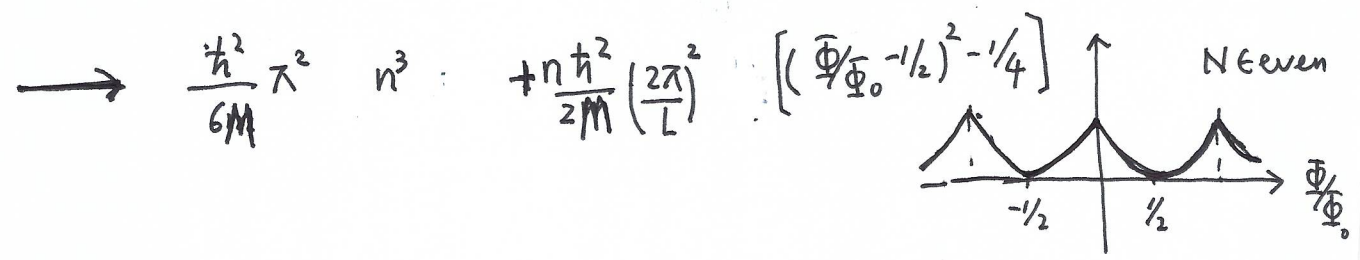 ⟶ ħ²/6M π² n³ + n ħ²/2M (2π/L)² [(Φ/Φ₀ -1/2)² - 1/4] N∈even
-1/2 1/2 1 Φ/Φ₀